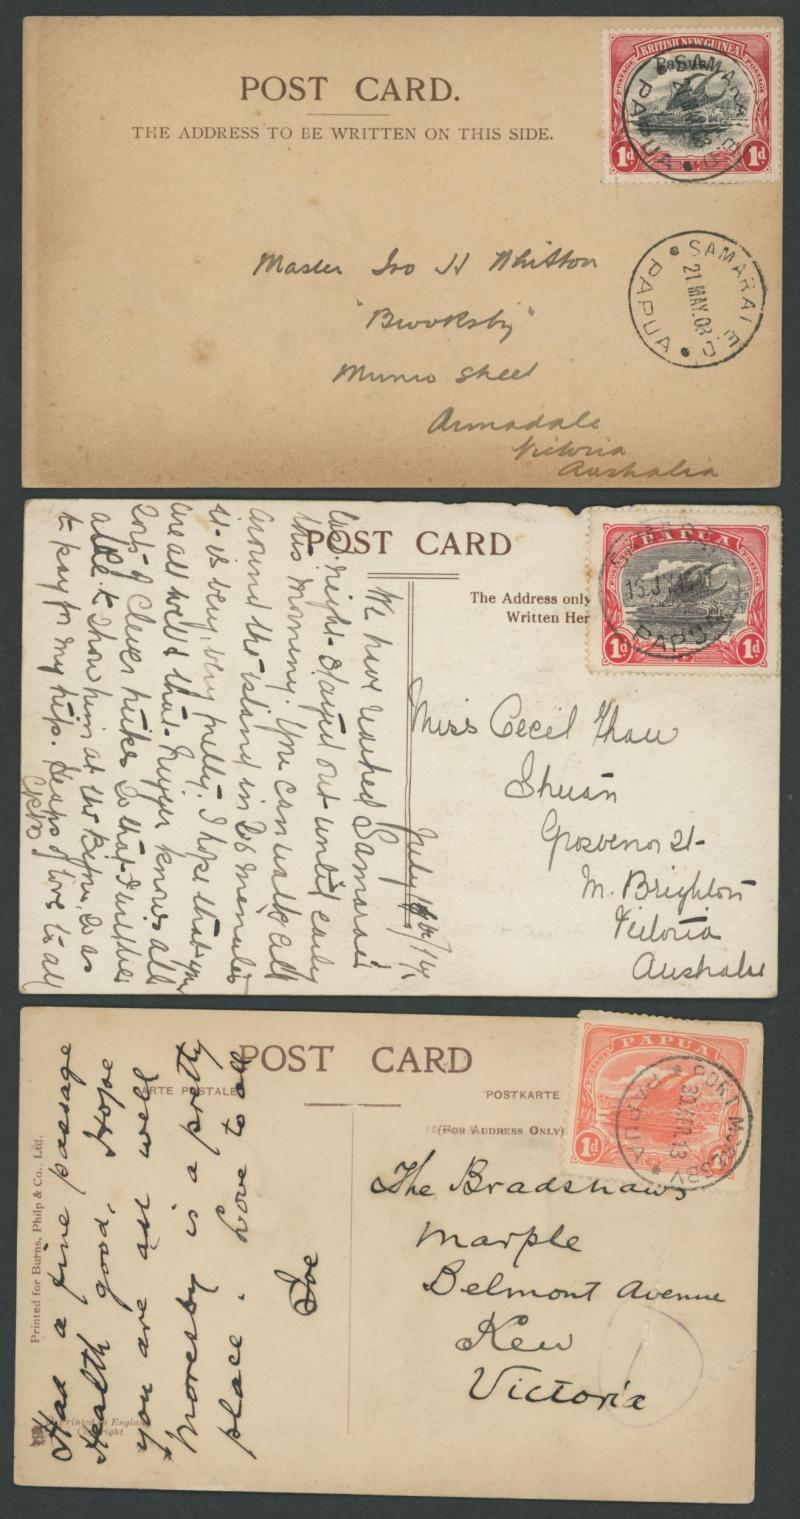 POST CARD.
THE ADDRESS TO BE WRITTEN ON THIS SIDE.
BRITISH NEW GUINEA
POSTAGE POSTAGE
Papua.
1d 1d
SAMARAI
PAPUA
SAMARAI E.D
21 MAY.08
PAPUA
Master Ivo H Whitton
"Brooksby"
Munro Street
Armadale
Victoria
Australia
POST CARD
The Address only
Written Her
PAPUA
POSTAGE POSTAGE
1d 1d
PAPUA
Miss Cecil Thau
Grosvenor St-
M. Brighton
Victoria
Australia
July /14
We have reached Samarai
last night - stayed out until early
this morning. You can walk all
around the island in 20 minutes
it is very, very pretty. I hope that you
are all well & that knows all
sorts of clever tricks so that I will be
able to show him at the as
to pay for my trip. Heaps of love to all
POST CARD
CARTE POSTALE
POSTKARTE
(FOR ADDRESS ONLY)
PAPUA
1d
PORT MORESBY
PAPUA
The Bradshaws
Marple
Belmont Avenue
Kew
Victoria
Had a fine passage
Health good, hope
you are all well
Moresby is a pretty
place. Love to all
Printed for Burns, Philp & Co., Ltd.
Printed in England
Copyright